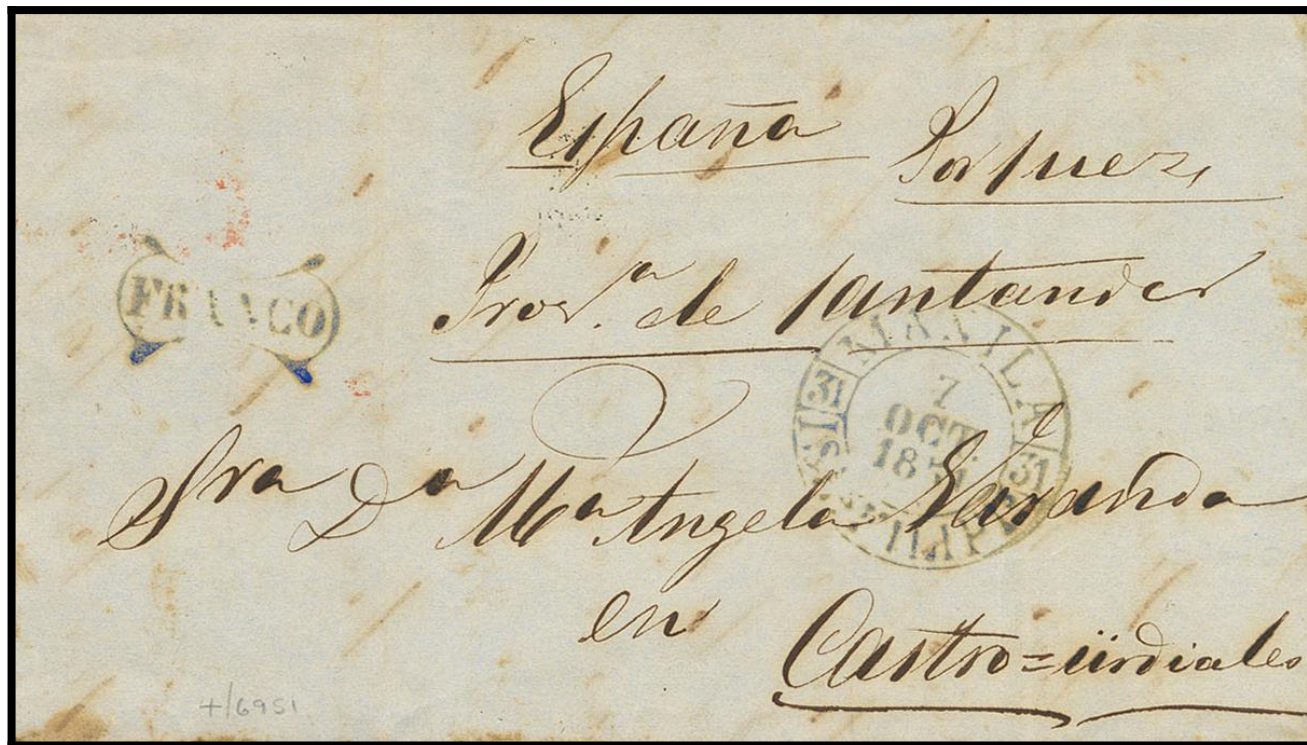 España
Por Suez
FRANCO
Prov.ª de Santander
MANILA
31 31
7
OCT
1854
Sra Dª Mª Angela
en
Castro=ürdiales
+/6951